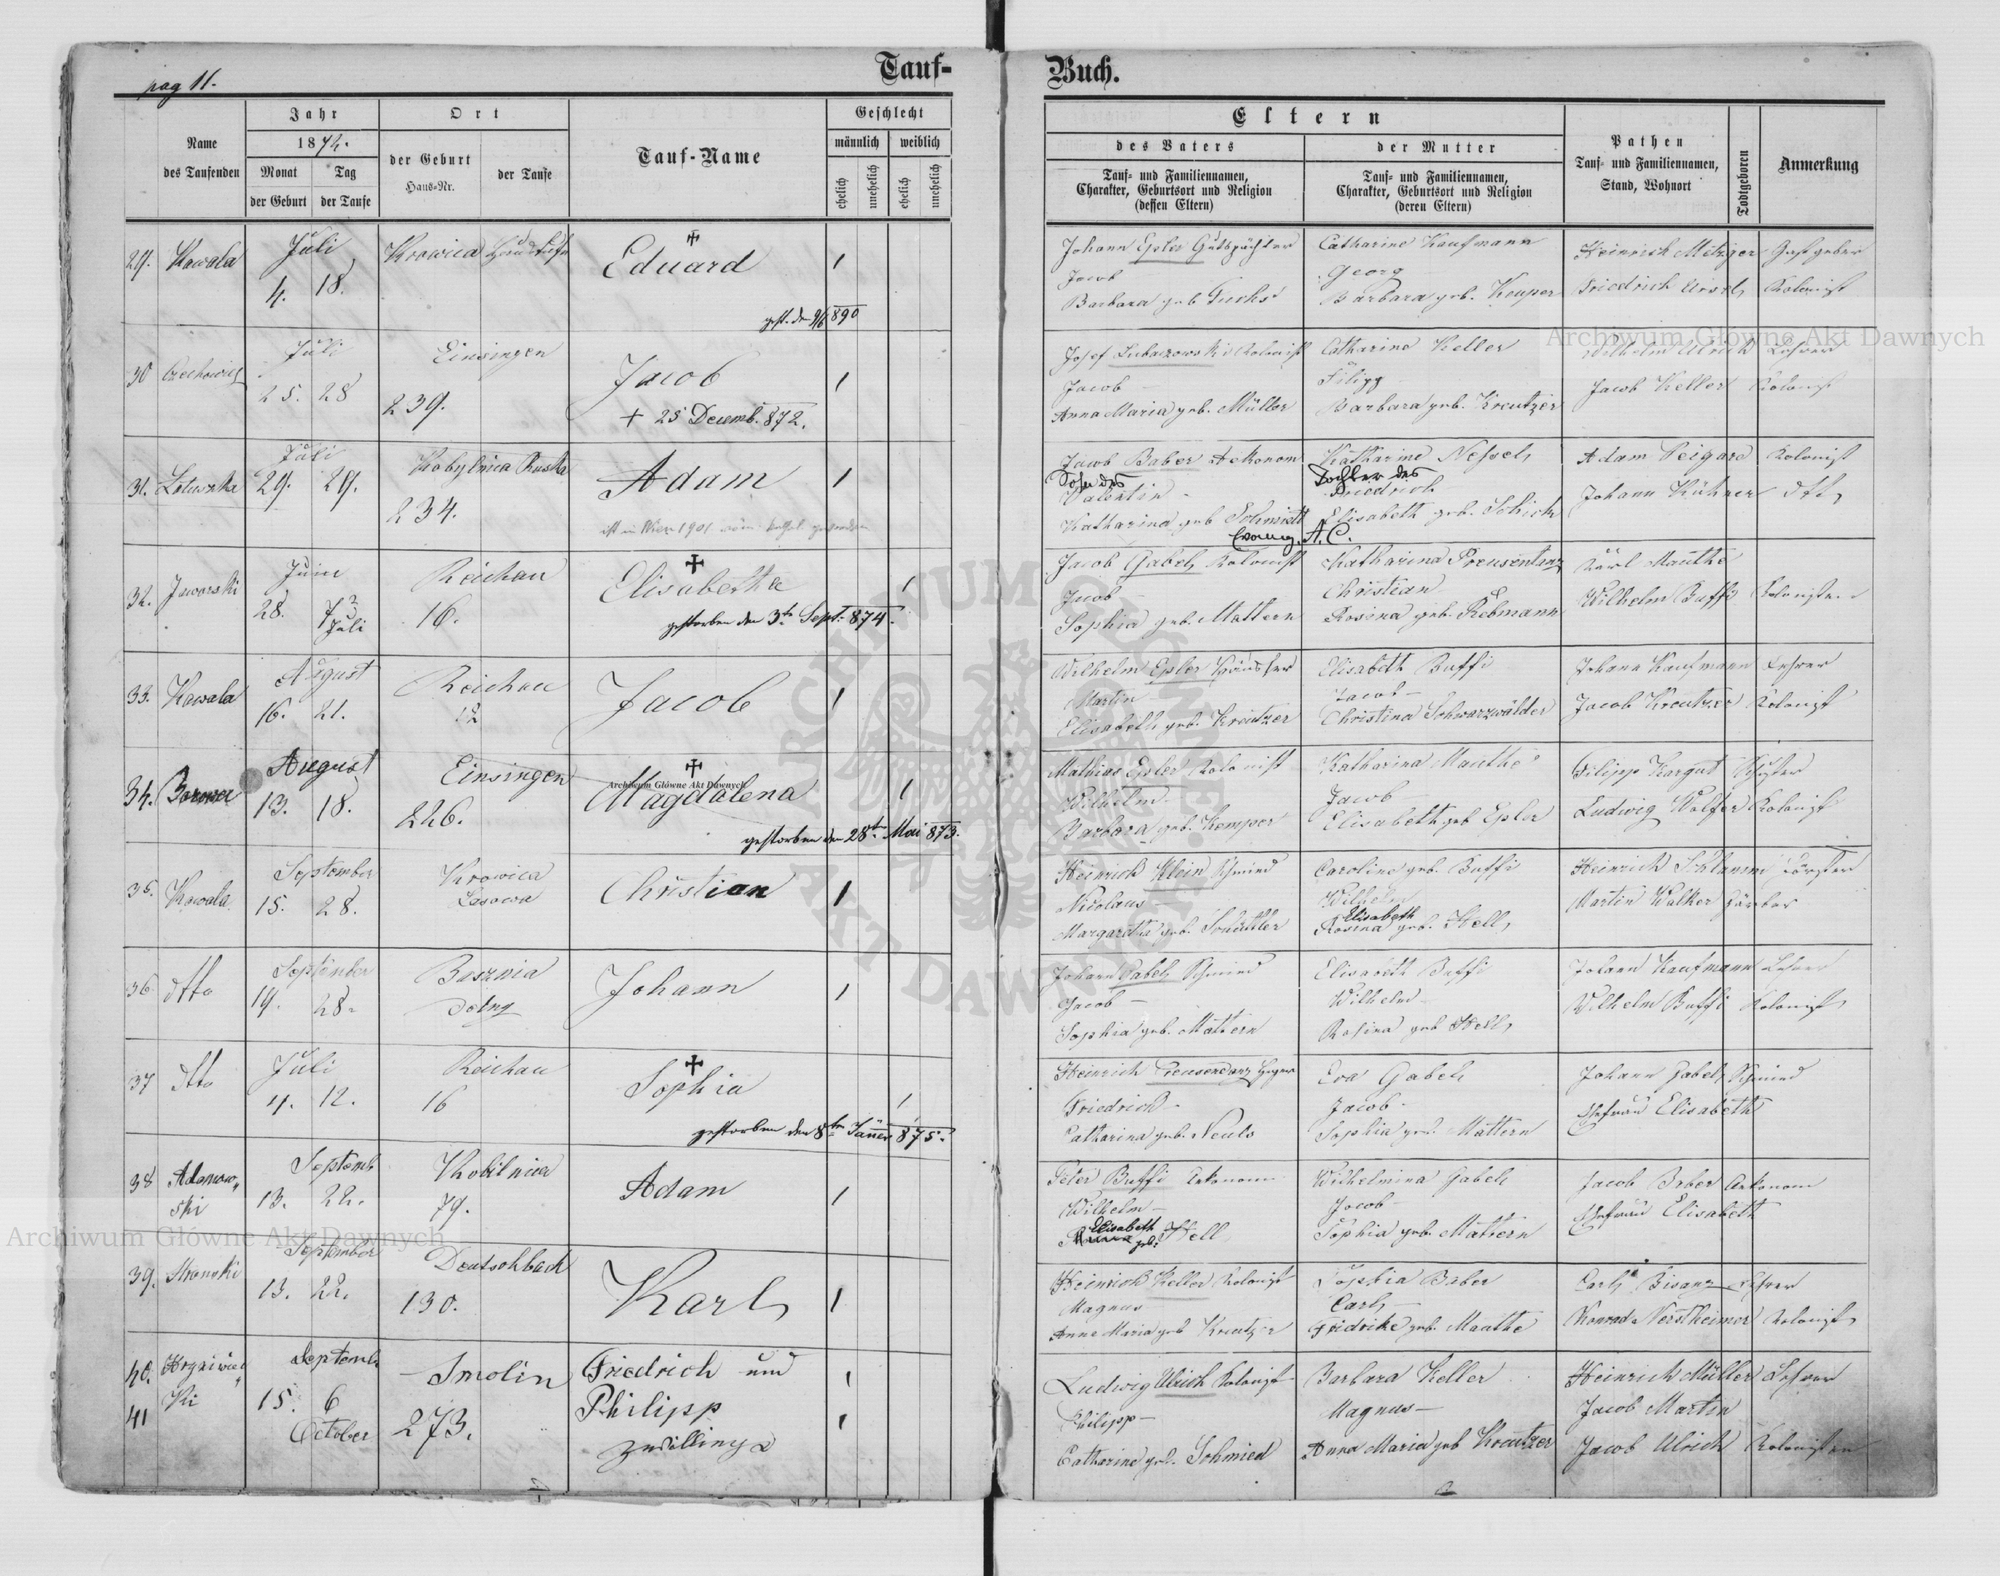 pag 11.
Tauf-
Buch.
Name
des Taufenden
Jahr
1872.
Monat
der Geburt
Tag
der Taufe
Ort
der Geburt
Haus-Nr.
der Taufe
Tauf-Name
Geschlecht
männlich
weiblich
ehelich
unehelich
ehelich
unehelich
Eltern
des Vaters
Tauf- und Familiennamen,
Charakter, Geburtsort und Religion
(dessen Eltern)
der Mutter
Tauf- und Familiennamen,
Charakter, Geburtsort und Religion
(deren Eltern)
Pathen
Tauf- und Familiennamen,
Stand, Wohnort
Todtgeboren
Anmerkung
29. Kawala
Juli
4. 18.
Krowica
Eduard
1
gest. den 9/6 890
Johann Epler Gutspächter
Jacob
Barbara geb Fuchs
Catharine Kaufmann
Georg
Barbara geb. Keuper
Heinrich Metzger Gastgeber
Friedrich Kolonist
30 Czechowicz
Juli
25. 28
Einsingen
239.
Jacob
+ 25 Decemb. 872.
1
Josef Lubaczowski Kolonist
Jacob
Anna Maria geb. Müller
Catharina Keller
Filipp
Barbara geb. Kreutzer
Wilhelm Ulrich Lehrer
Jacob Keller Kolonist
31.
Juli
29. 29.
Kobylnica Ruska
234.
Adam
1
Jacob Baber Oekonom
Sohn des
Valentin
Katharina geb Schmidt
Evang. A. C.
Katharine Nessel
Tochter des
Friedrich
Elisabeth geb. Schick
Adam Kolonist
Johann Kühner dtto
32. Jaworski
Juni
28. 7
Juli
Reichau
16.
Elisabetha
gestorben den 3ten Sept. 874.
1
Jacob Gabel Kolonist
Jacob
Sophia geb. Mattern
Katharina Preusentanz
Christian
Rosina geb. Rebmann
Karl Mauthe
Wilhelm Buffi Kolonisten
33. Kawala
August
16. 21.
Reichau
12
Jacob
1
Wilhelm Epler
Martin
Elisabeth geb. Kreutzer
Elisabeth Buffi
Jacob
Christina Schwarzwälder
Johann Kaufmann Lehrer
Jacob Kreutzer Kolonist
34.
August
13. 18.
Einsingen
226.
Magdalena
gestorben den 28ten Mai 873.
1
Mathias Epler Kolonist
Wilhelm
Barbara geb. Kemper
Katharina Mauthe
Jacob
Elisabeth geb Epler
Filipp Kargut
Ludwig Wolfer Kolonist
35. Kawala
September
15. 28.
Krowica
Lasowa
Christian
1
Heinrich Klein Schmied
Nicolaus
Margaretha geb. Schüttler
Caroline geb. Buffi
Wilhelm
Elisabeth
Rosina geb. Hell
Heinrich Schlamm Förster
Martin Walker Färber
36 dtto
September
19. 28.
Basznia
Dolny
Johann
1
Johann Gabel Schmied
Jacob
Sophia geb. Mattern
Elisabeth Buffi
Wilhelm
Rosina geb Hell
Johann Kaufmann Lehrer
Wilhelm Buffi Kolonist
37 dtto
Juli
4. 12.
Reichau
16
Sophia
gestorben den 8ten Jänner 875.
1
Heinrich Preusendanz
Friedrich
Catharina geb. Neuls
Eva Gabel
Jacob
Sophia geb. Mattern
Johann Gabel Schmied
Ehefrau Elisabeth
38 Adamow-
ski
Septemb
13. 22.
Kobilnica
79.
Adam
1
Peter Buffi Oekonom
Wilhelm
Elisabeth
geb. Hell
Wilhelmina Gabel
Jacob
Sophia geb. Mattern
Jacob Baber Oekonom
Ehefrau Elisabeth
39. Skronski
September
13. 22.
Deutschbach
130.
Karl
1
Heinrich Keller Kolonist
Magnus
Anna Maria geb Kreutzer
Sophia Baber
Carl
Fridrike geb. Mauthe
Carl Bisanz Lehrer
Konrad Nerstheimer Kolonist
40.
41
Septemb
15. 6
October
Smolin
273.
Friedrich und
Philipp
Zwillinge
1
1
Ludwig Ulrich Kolonist
Philipp
Catharine geb. Schmied
Barbara Keller
Magnus
Anna Maria geb Kreutzer
Heinrich Müller Lehrer
Jacob Martin
Jacob Ulrich Kolonisten
Archiwum Główne Akt Dawnych
Archiwum Główne Akt Dawnych
Archiwum Główne Akt Dawnych
ARCHIWUM GŁÓWNE
AKT DAWNYCH